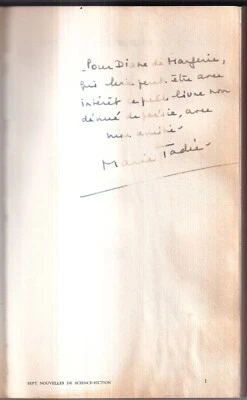 Pour Diane de Margerie,
qui lira peut-être avec
intérêt ce petit livre non
dénué de poésie, avec
mon amitié -
Marie Tadié -
SEPT NOUVELLES DE SCIENCE-FICTION
1